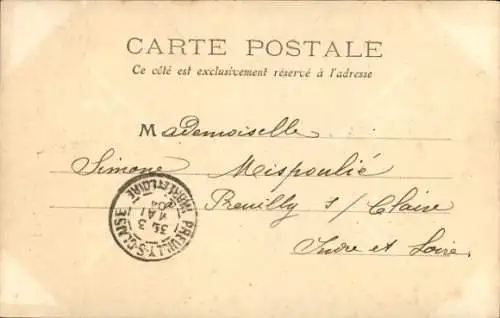 CARTE POSTALE
Ce côté est exclusivement réservé à l'adresse
Mademoiselle
Simone Mispoulié
Preuilly s/ Claise
Indre et Loire
PREUILLY-S-CLAISE
INDRE ET LOIRE
3
MAI
04